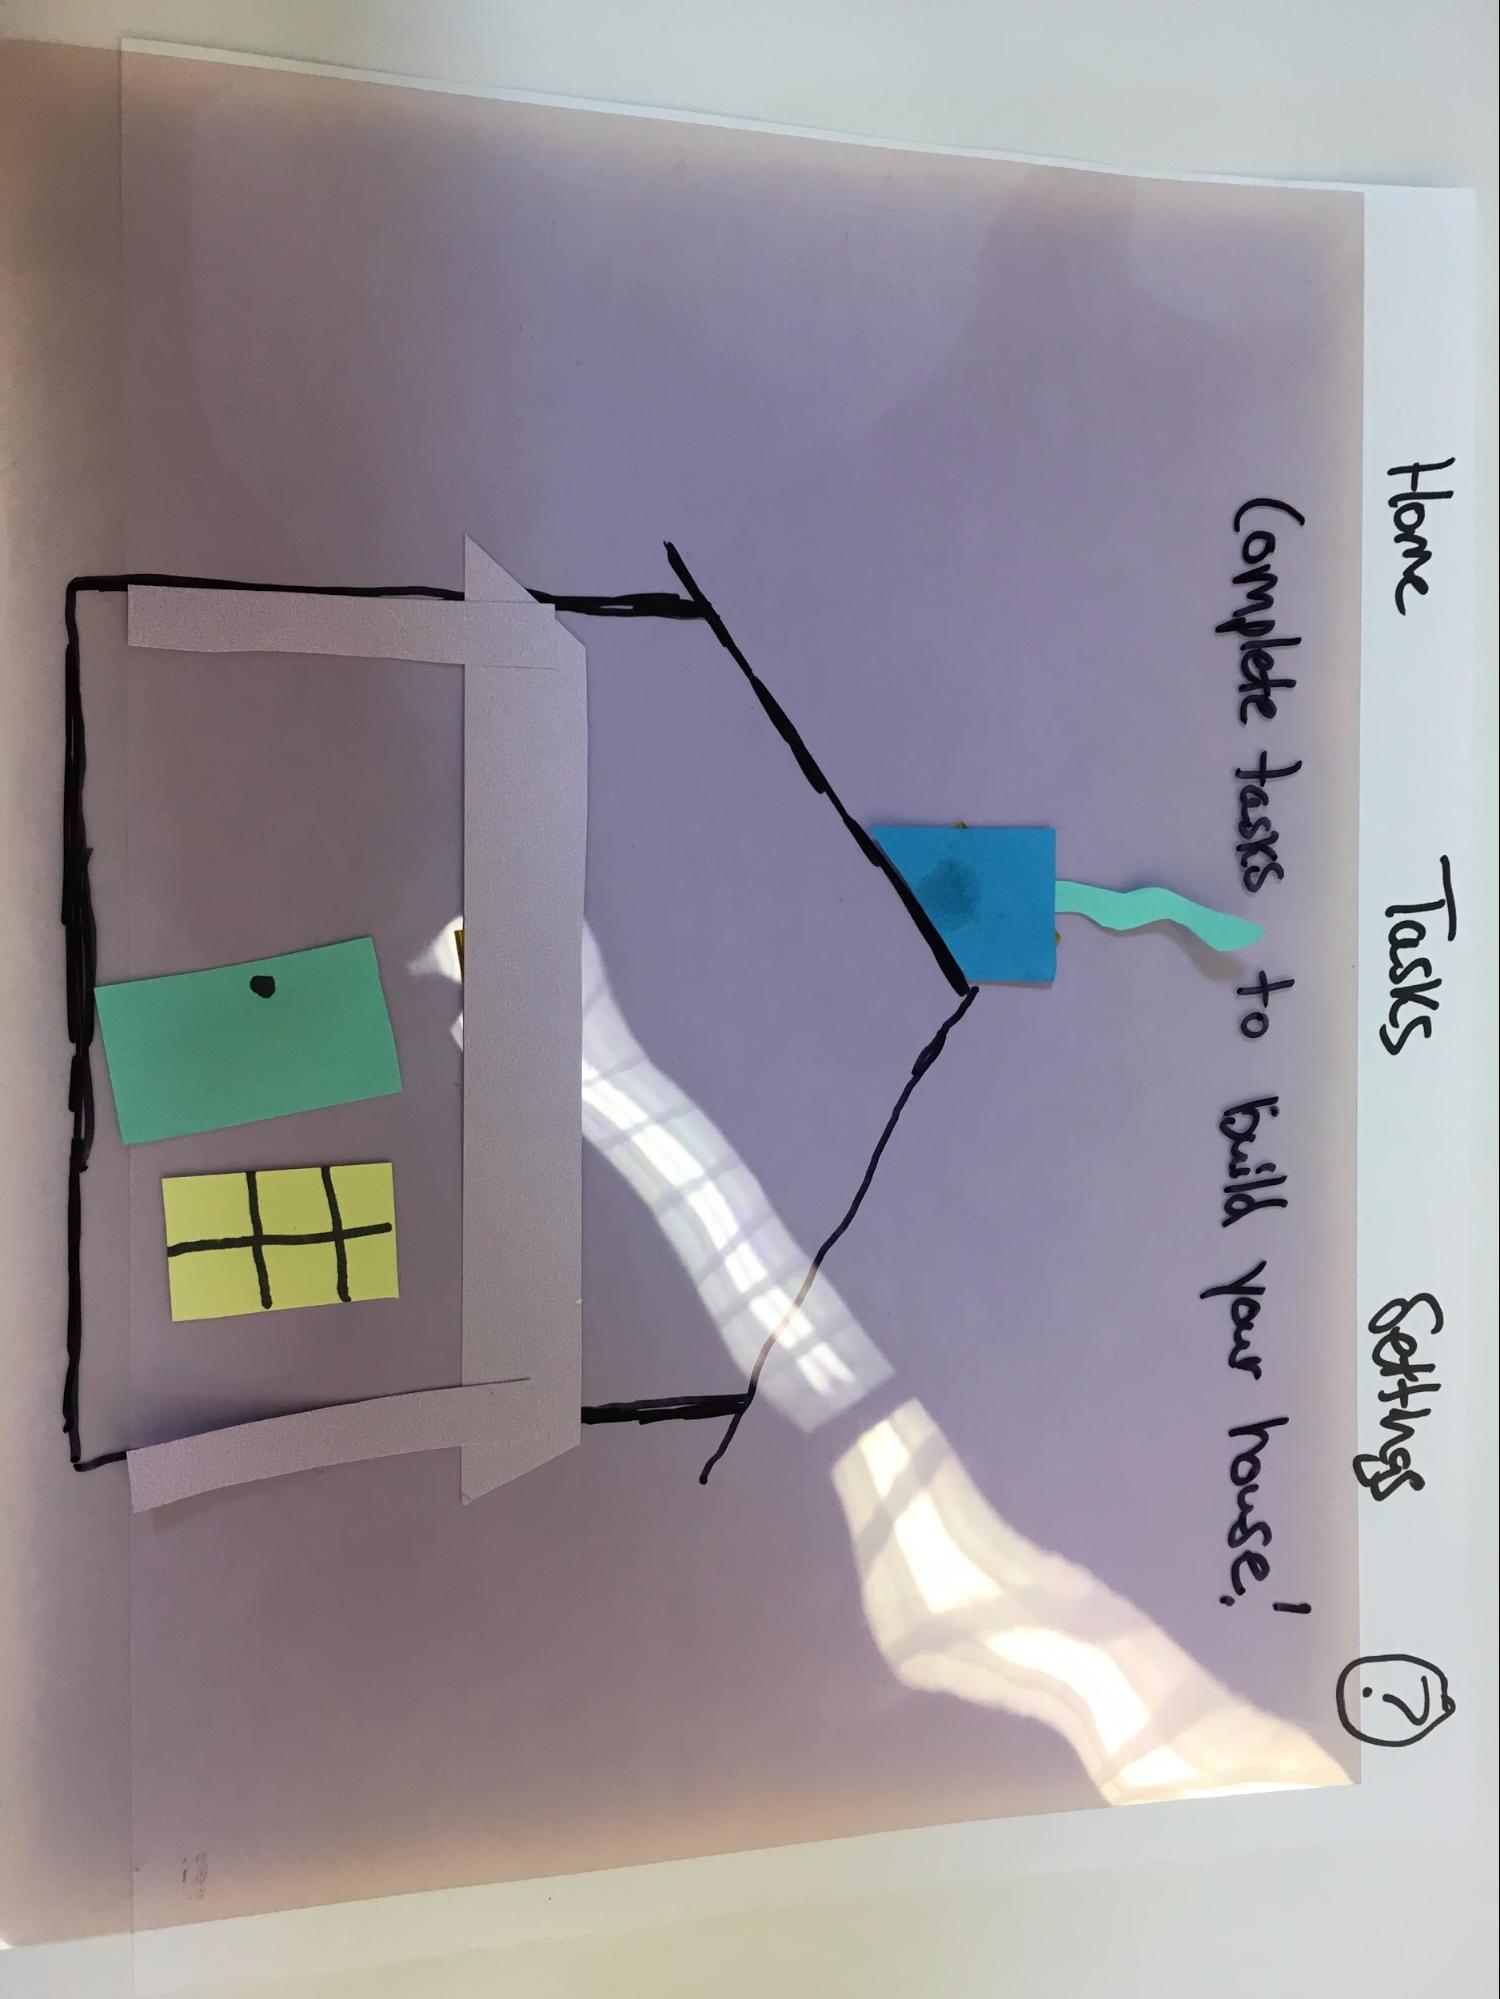 Home Tasks Settings ?
Complete tasks to build your house!